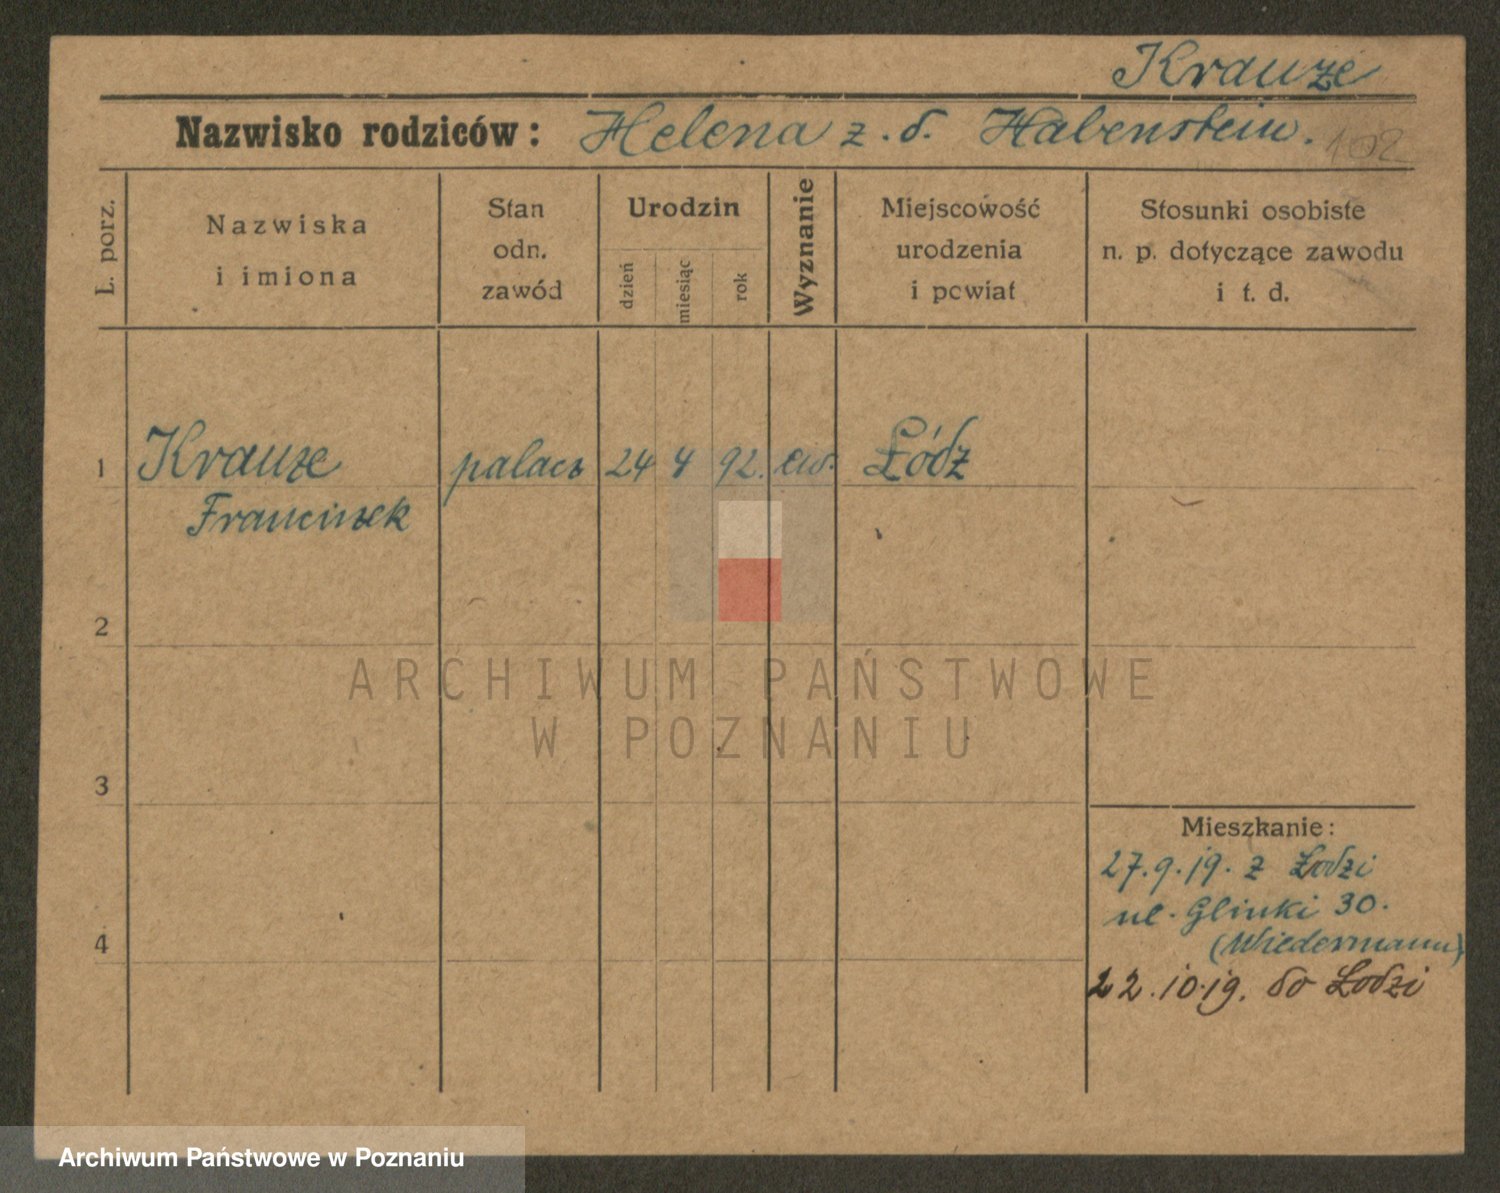 Krauze
Nazwisko rodziców: Helena z. d. Habenstein. 102
L. porz.
Nazwiska
i imiona
Stan
odn.
zawód
Urodzin
dzień
miesiąc
rok
Wyznanie
Miejscowość
urodzenia
i powiat
Stosunki osobiste
n. p. dotyczące zawodu
i t. d.
1 Krauze palacz 24 4 92. Łódz
Franciszek
2
3
4
Mieszkanie:
27.9.19. z Łodzi
ul. Glinki 30.
(Wiedermann)
22.10.19. do Łodzi
ARCHIWUM PAŃSTWOWE
W POZNANIU
Archiwum Państwowe w Poznaniu